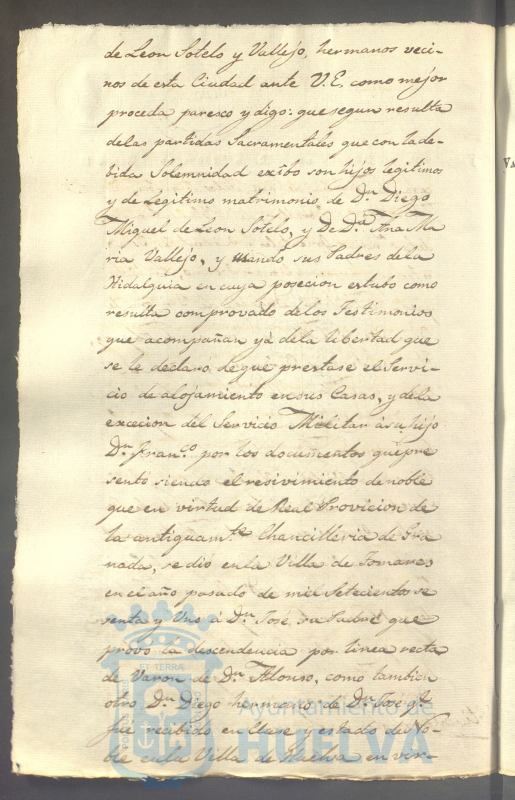 de Leon Sotelo y Vallejo, hermanos veci-
nos de esta Ciudad ante V.E. como mejor
proceda paresco y digo: que segun resulta
delas partidas Sacramentales que con lade-
bida Solemnidad exibo son hijos legitimos
y de legitimo matrimonio de Dn. Diego
Miguel de Leon Sotelo, y De Da. Ana Ma
ria Vallejo, y usando sus Padres de la
Hidalguia en cuya posecion estubo como
resulta comprovado delos Testimonios
que acompañan ya dela libertad que
se le declaró de que prestase el Servi-
cio de alojamiento en sus Casas, y dela
excecion del Servicio Militar á su hijo
Dn. Franco. por los documentos que pre
sentó siendo el resivimiento de noble
que en virtud de Real Provicion de
la antiguamte. Chancilleria de Gra
nada, se dio en la Villa de Tomares
en el año pasado de mil Setecientos se
senta y Uno á Dn. José, su Padre que
provó la descendencia por linea recta
de Varon de Dn. Alonso, como tambien
otro Dn. Diego hermano de Dn. José qe.
fué recibido en Clase y estado de No-
ble en la Villa de Huelva en vir-
ET TERRÆ
Ayuntamiento de
HUELVA